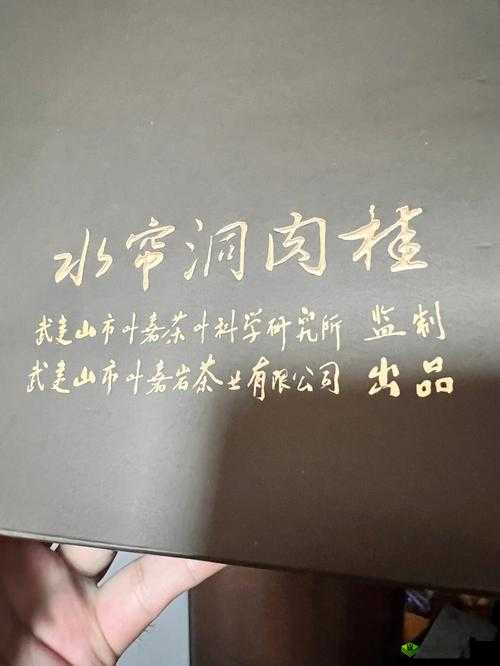 水帘洞肉桂
武夷山市叶嘉茶叶科学研究所 监制
武夷山市叶嘉岩茶业有限公司 出品